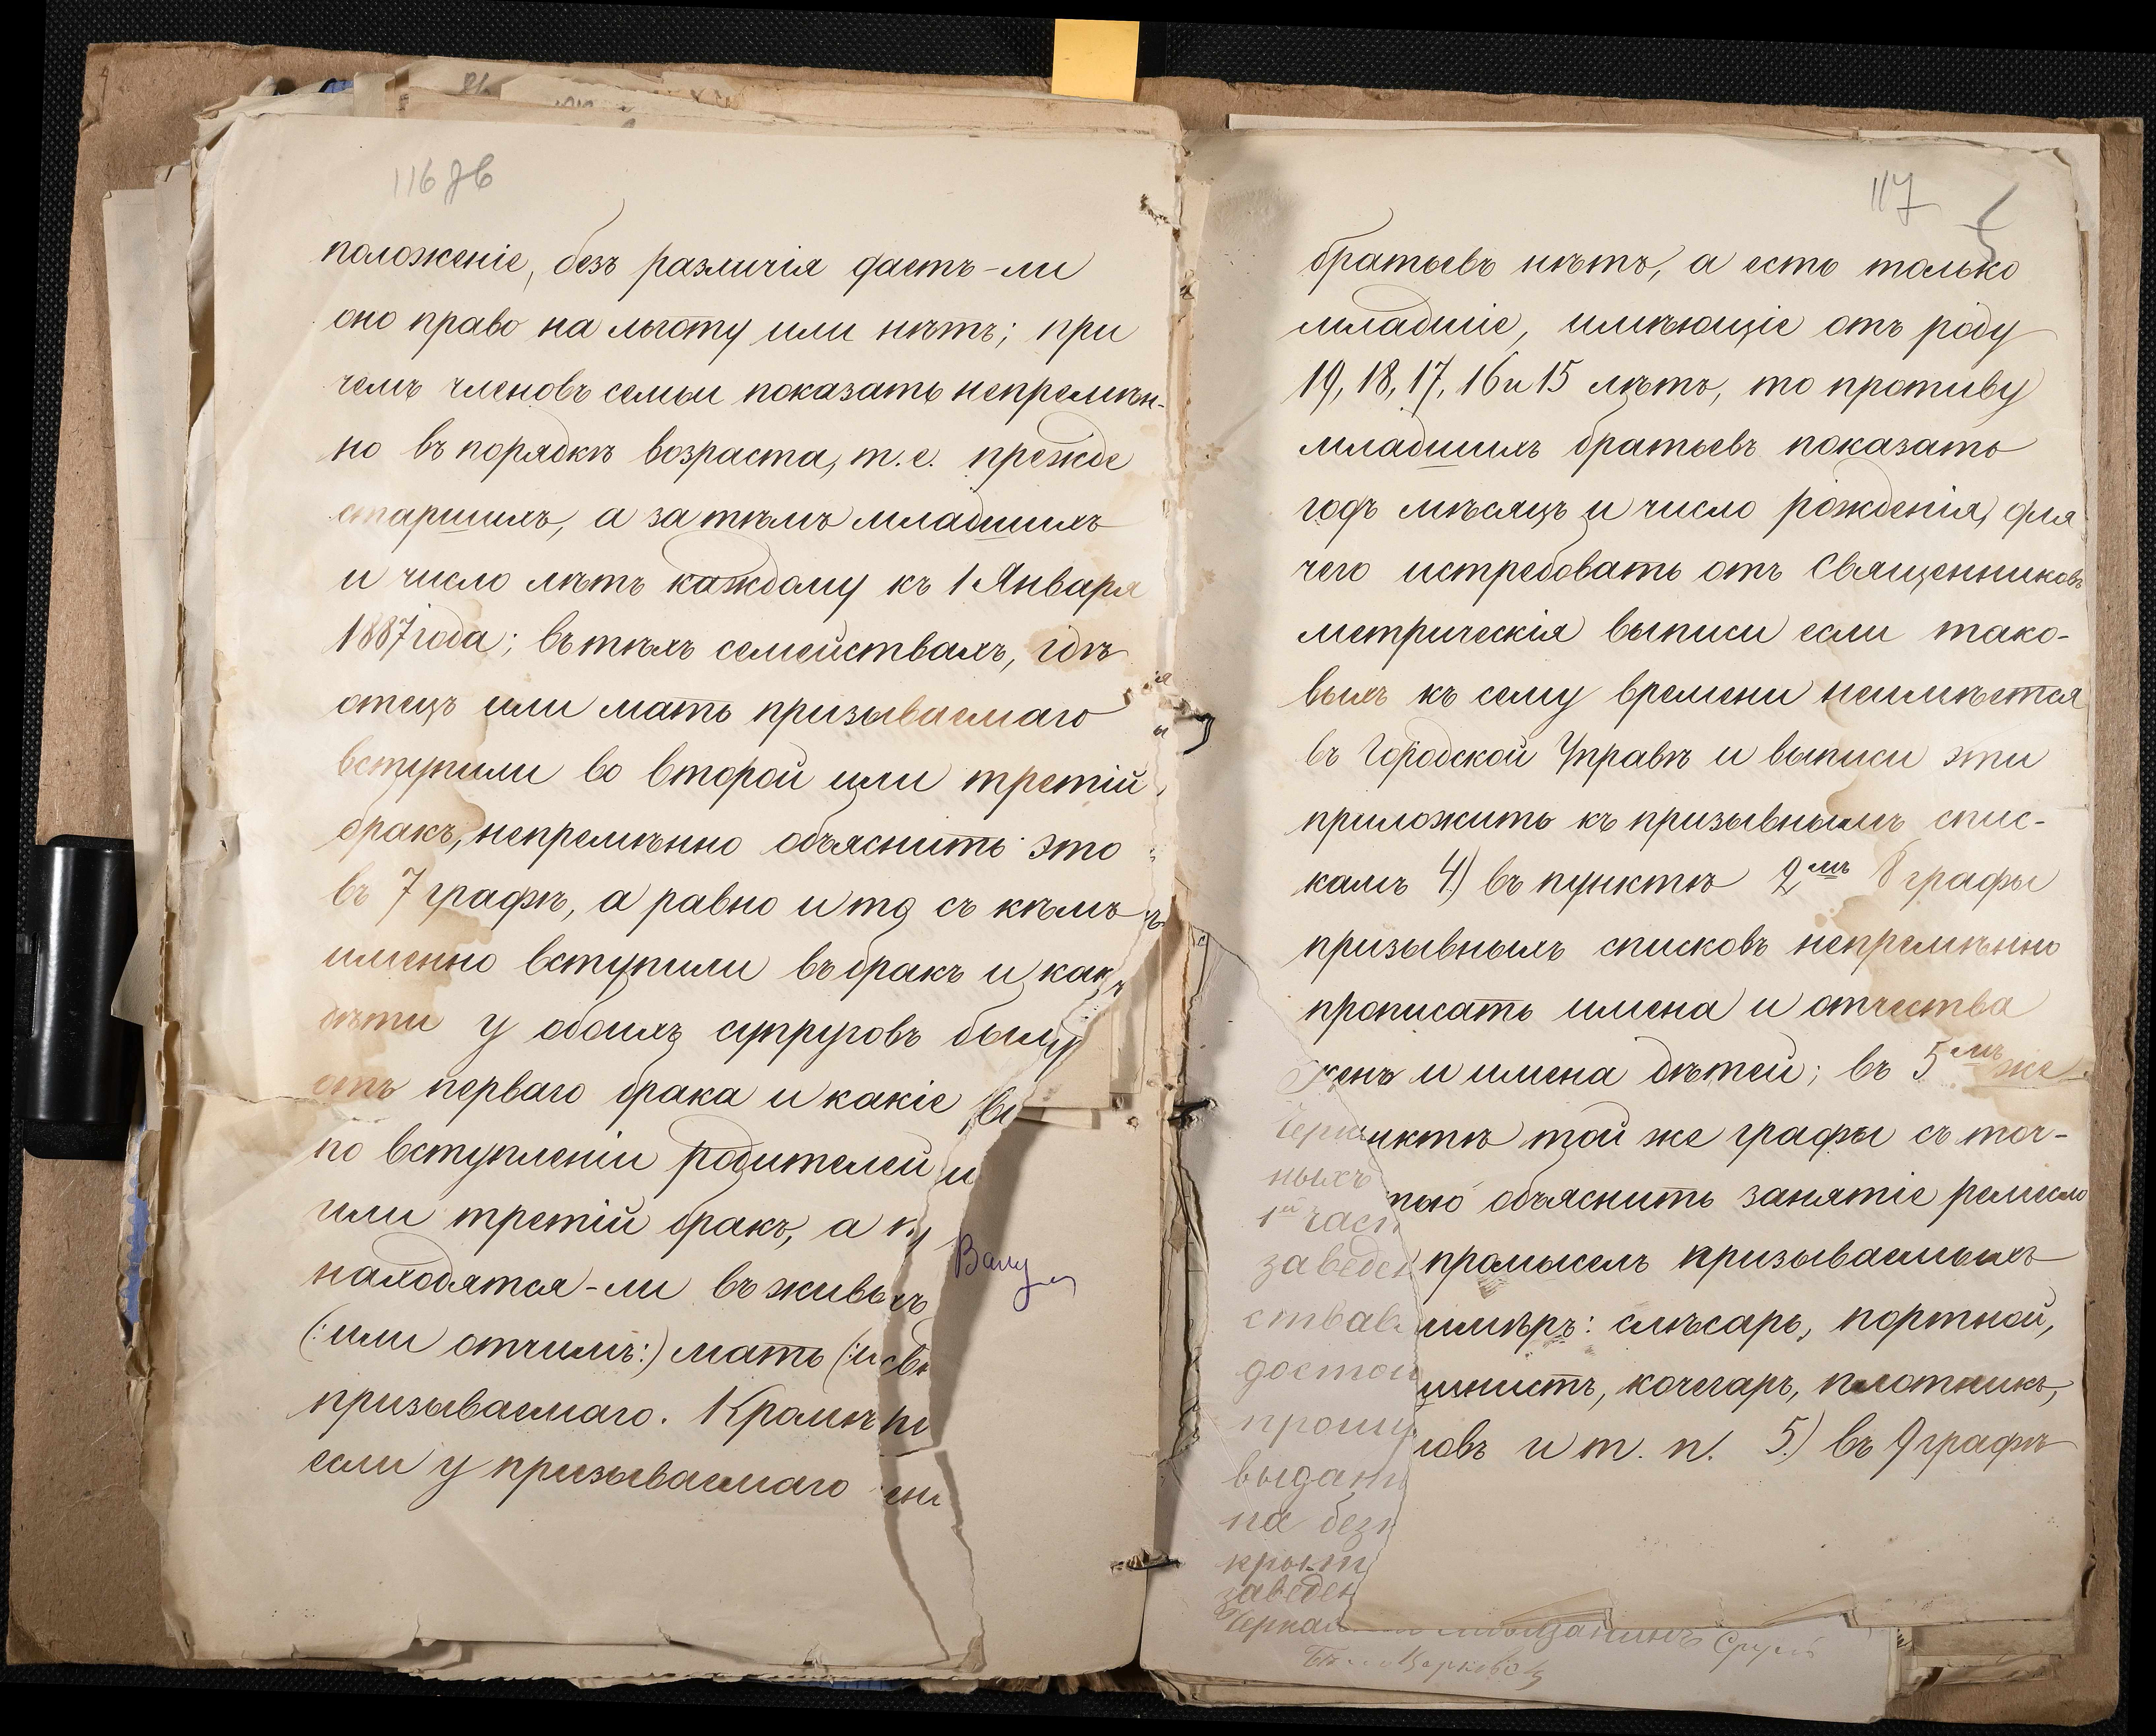 116 зв
положеніе, безъ различія даетъ-ли
оно право на льготу или нѣтъ; при
чемъ членовъ семьи показать непремѣн-
но въ порядкѣ возраста, т.е. прежде
старшихъ, а за тѣмъ младшихъ
и число лѣтъ каждому къ 1 Января
1887 года; въ тѣхъ семействахъ, гдѣ
отецъ или мать призываемаго
вступили во второй или третій
бракъ, непремѣнно объяснить это
въ 7 графѣ, а равно и то съ кѣмъ
именно вступили въ бракъ и как
дѣти у обоихъ супруговъ были
отъ перваго брака и какіе
по вступленіи родителей
или третій бракъ, а
находятся-ли въ живыхъ
(:или отчимъ:) мать (:и
призываемаго. Кромѣ
если у призываемаго
117
братьевъ нѣтъ, а есть только
младшіе, имѣющіе отъ роду
19, 18, 17, 16 и 15 лѣтъ, то противу
младшихъ братьевъ показать
годъ мѣсяцъ и число рожденія, для
чего истребовать отъ Священниковъ
метрическія выписи если тако-
выхъ къ сему времени неимѣется
въ Городской Управѣ и выписи эти
приложить къ призывнымъ спис-
камъ 4) въ пунктѣ 2мъ 8 графы
призывныхъ списковъ непремѣнно
прописать имена и отчества
женъ и имена дѣтей; въ 5мъ же
нктѣ той же графы съ точ-
ных
тью объяснить занятіе ремесло
1й част
завед
промыселъ призываемыхъ
ства
имѣръ: слѣсарь, портной,
достои
инистъ, кочегаръ, плотникъ,
пром
ловъ и т. п. 5.) въ 9 графѣ
выдан
на без
крыт
заведен
Черка